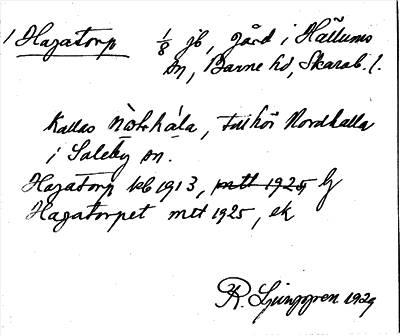 1 Hagatorp 1/8 jb, gård i Hällums
sn, Barne hd, Skarab. l.
Kallas , tillhör Nordhalla
i Saleby sn.
Hagatorp kb 1913, mtt 1925, lj
Hagatorpet mtt 1925, ek
R. Ljunggren 1929